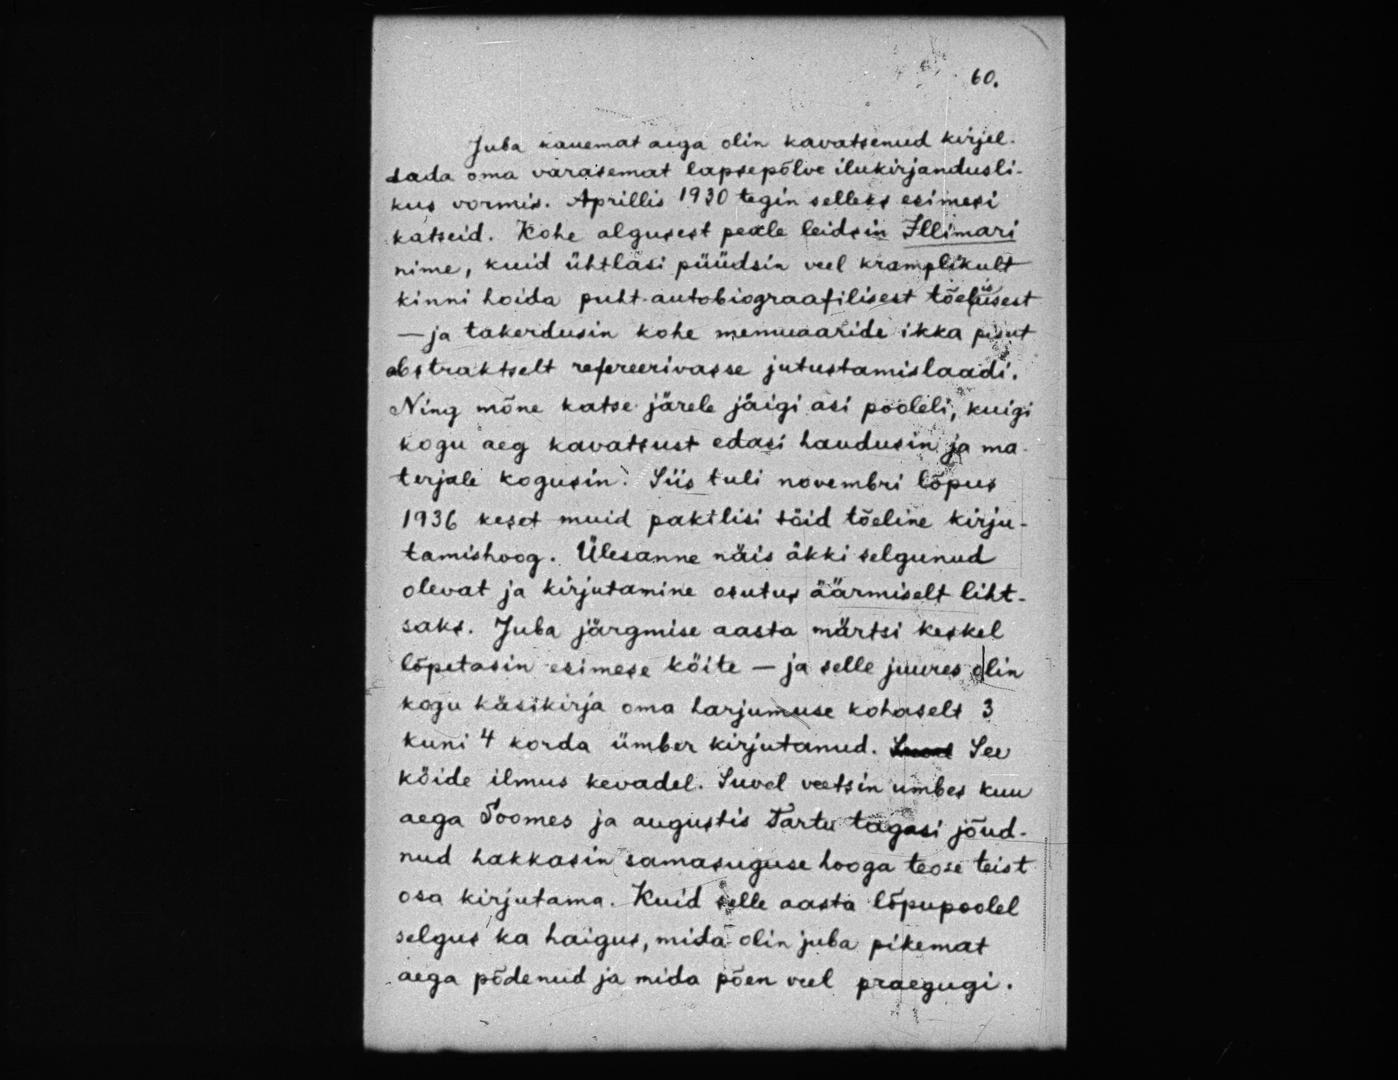 60.
Juba kauemat aega olin kavatsenud kirjel-
dada oma varasemat lapsepõlve ilukirjandusli-
kus vormis. Aprillis 1930 tegin selleks esimesi
katseid. Kohe algusest peale leidsin Illimari
nime, kuid ühtlasi püüdsin veel kramplikult
kinni hoida puht-autobiograafilisest tõelisusest
— ja takerdusin kohe memuaaride ikka pisut
abstraktselt refereerivasse jutustamislaadi.
Ning mõne katse järele jäigi asi pooleli, kuigi
kogu aeg kavatsust edasi haudusin ja ma-
terjale kogusin. Siis tuli novembri lõpus
1936 keset muid paktilisi töid tõeline kirju-
tamishoog. Ülesanne näis äkki selgunud
olevat ja kirjutamine osutus äärmiselt liht-
saks. Juba järgmise aasta märtsi keskel
lõpetasin esimese köite — ja selle juures olin
kogu käsikirja oma harjumuse kohaselt 3
kuni 4 korda ümber kirjutanud. See
köide ilmus kevadel. Suvel veetsin umbes kuu
aega Soomes ja augustis Tartu tagasi jõud-
nud hakkasin samasuguse hooga teose teist
osa kirjutama. Kuid selle aasta lõpupoolel
selgus ka haigus, mida olin juba pikemat
aega põdenud ja mida põen veel praegugi.